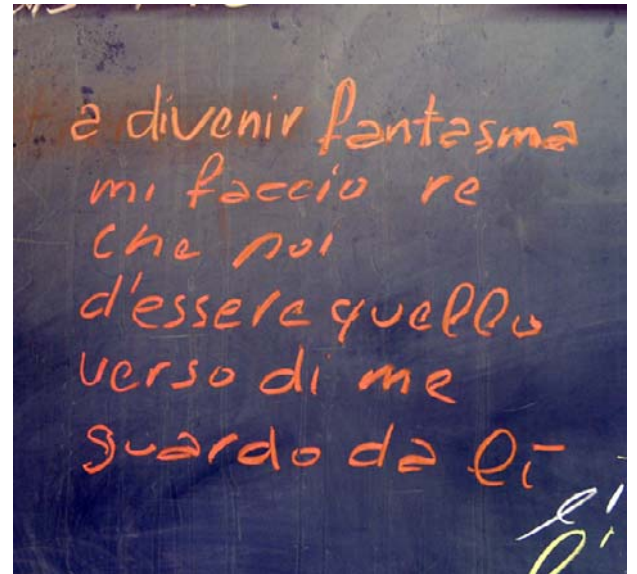 a divenir fantasma
mi faccio re
che poi
d'essere quello
verso di me
guardo da lì